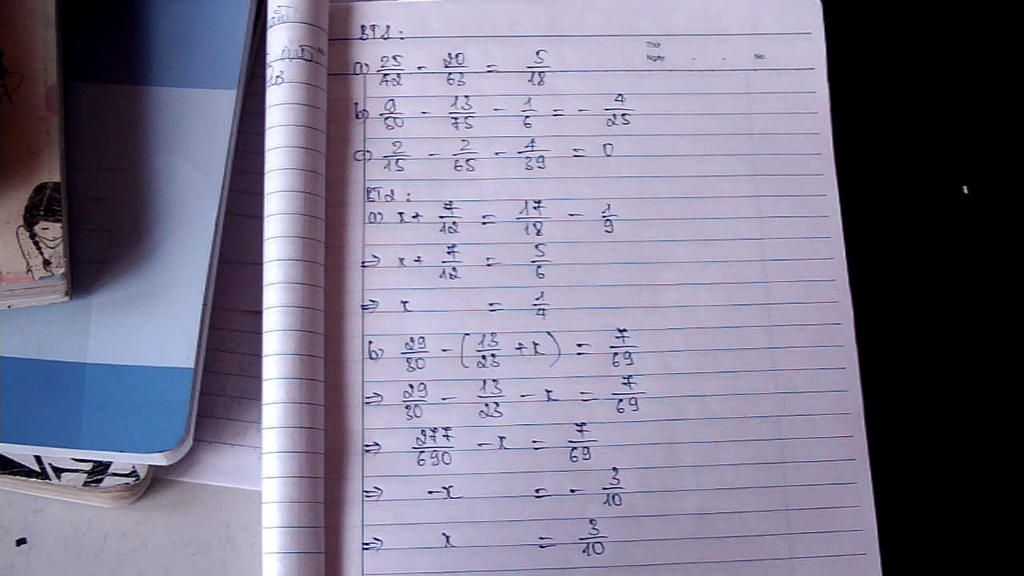 BT1:
Thứ
Ngày . . No.
a) 25/42 - 20/63 = 5/18
b) 9/50 - 13/75 - 1/6 = - 4/25
c) 2/15 - 2/65 - 4/39 = 0
BT2:
a) x + 7/12 = 17/18 - 1/9
=> x + 7/12 = 5/6
=> x = 1/4
b) 29/30 - (13/23 + x) = 7/69
=> 29/30 - 13/23 - x = 7/69
=> 277/690 - x = 7/69
=> -x = - 3/10
=> x = 3/10